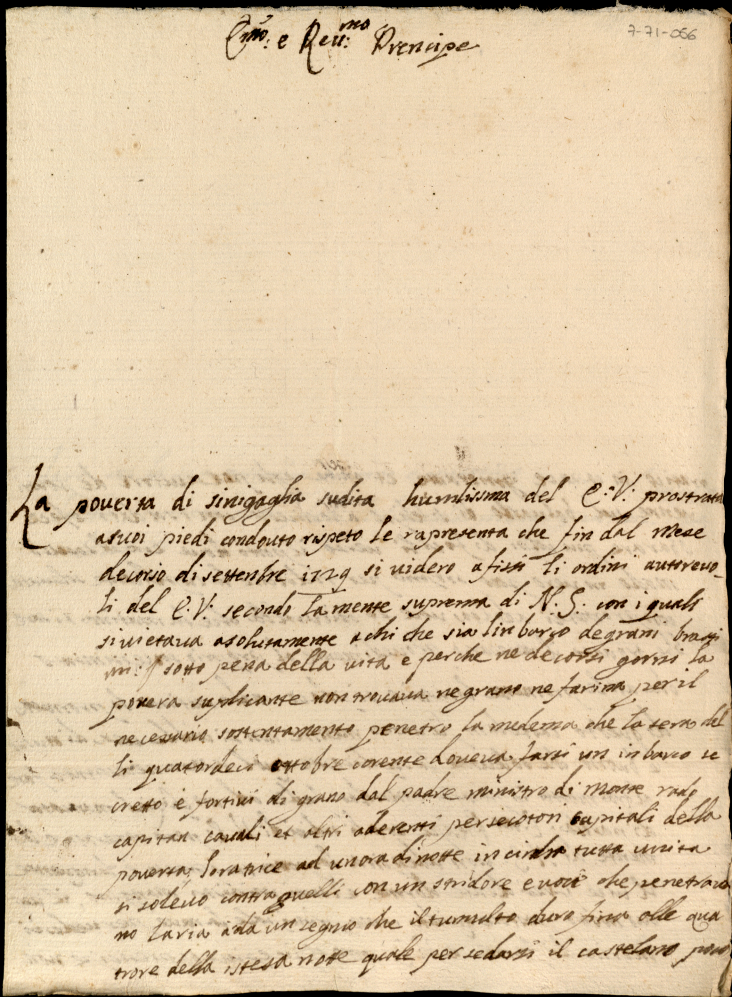 7-71-056
Emo: e Reu:mo Prencipe
La pouerta di sinigaglia sudita humilissma del E:V: prostrata
a suoi piedi condouto rispeto le rapresenta che fin dal mese
decorso di settenbre 1729 si videro afissi li ordini autoreuo_
li del E.V. secondo la mente suprema di N.S. con i quali
si vietaua asolutamente a chi che sia linbarco de grani
sotto pena della vita e perche ne decorsi gorni la
pouera suplicante non trouaua ne grano ne farina per il
necessario sostentamento penetro la medema che la sera del
li quatordeci ottobre corente doueua farsi un inbarco se
cretto e fortiui di grano dal padre ministro di monte rado
capitan cauali et altri aderenti persecotori capitali della
pouerta, loratrice ad unora di notte in cinta tutta unita
si soleuo contra quelli con un stridore e voci che penetraua
no laria a da un segno che il tumulto duro fina alle qua
trore della istesa notte quale per sedarsi il castelano